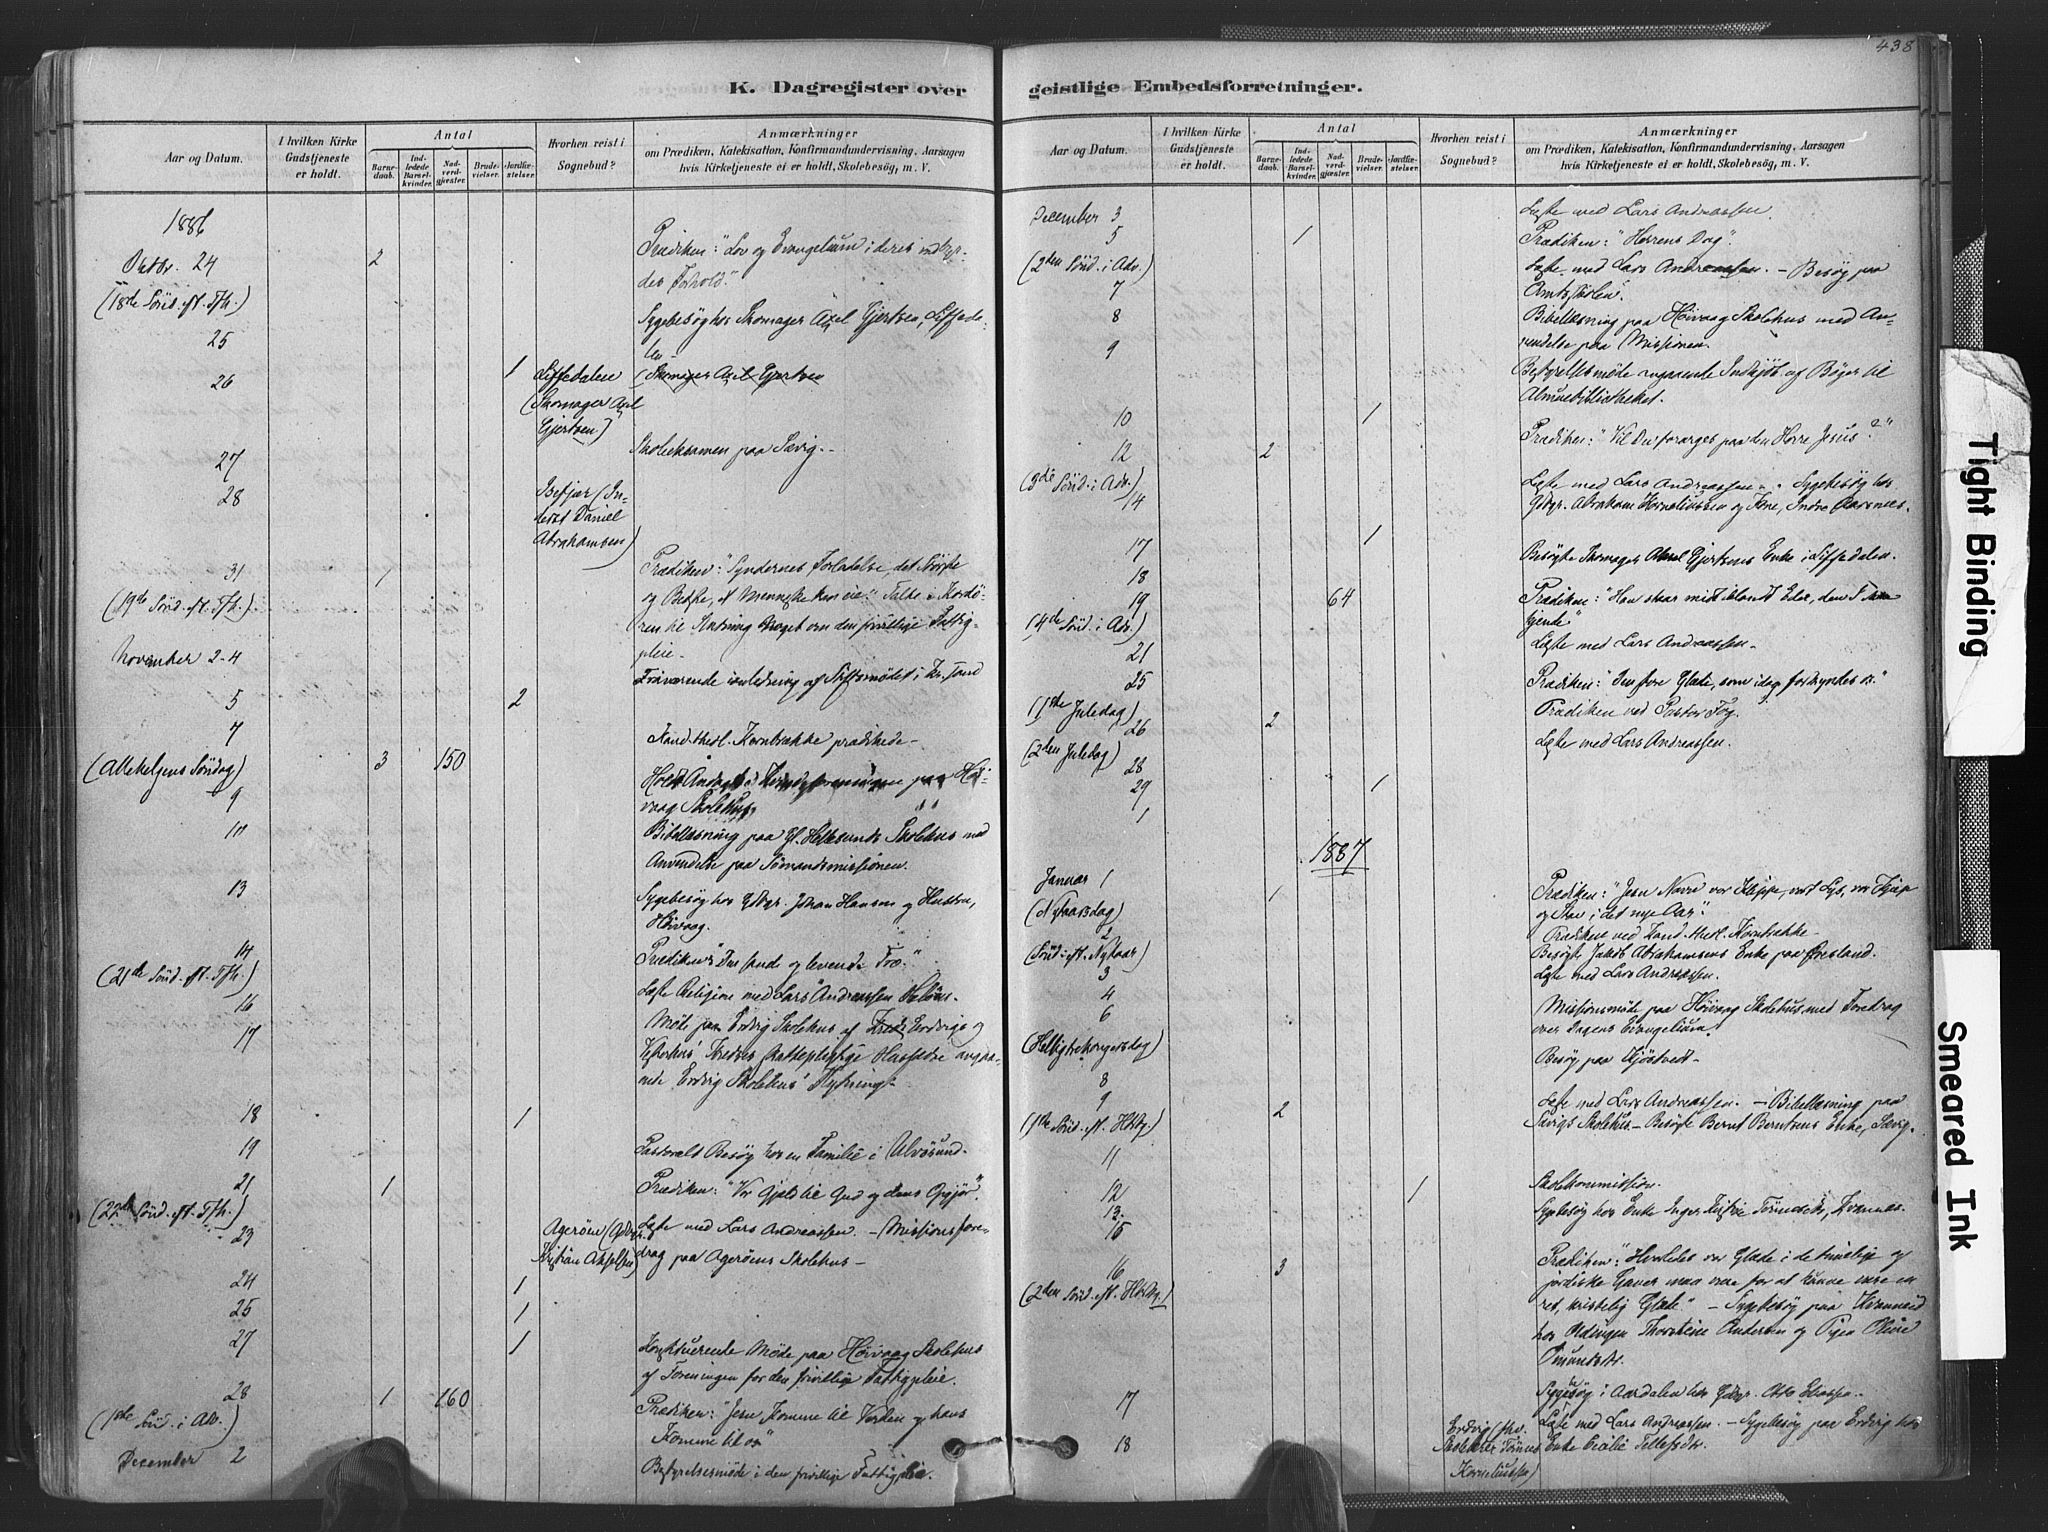 438
K. Dagregister over
Aar og Datum.
I hvilken Kirke Gudstjeneste er holdt.
Antal
Barnedaab.
Indledede Barselkvinder.
Nadverdgjæster.
Brudevielser.
Jordfæstelser.
Hvorhen reist i Sognebud?
Anmærkninger
om Prædiken, Katekisation, Konfirmandundervisning, Aarsagen
hvis Kirketjeneste ei er holdt, Skolebesög, m. V.
1886
Oktbr. 24 2 Prædiken: "Lov og Evangelium i deres indbyr-
des Forhold."
(18de Sönd. eft. Tfh.)
25 Sygebesög hos Skomager Axel Gjertsen, Liffeda-
len -
26 1 Liffedalen (Skomager Axel Gjertsen
(Skomager Axel
Gjertsen)
27 Skoleeksamen paa Sævig.
28 Isefjær (In-
derst Daniel
Abrahamsen)
31 1 Prædiken: "Syndernes Forladelse, det Störste
(19de Sönd. eft. Tfh.) og Bedste, et Menneske kan eie." Talte i Kordö-
ren til Antning Noget om den frivillige Fattig-
pleie.
November 2-4 Fraværende i anledning af Stiftsmödet i Kr.sand
5 2
7 Kand. theol. Kornbrække prædikede -
(Allehelgens Söndag) 3 150
9 Holdt Andagt i Kvindeforeningen paa Höi-
vaag Skolehus
10 Bibellæsning paa Gl. Hellesunds Skolehus med
Anvendelse paa Sömandsmissionen.
13 Sygebesög hos Gdbgr. Johan Hansen og Hustru,
Höivaag.
14 Prædiken: "Den sande og levende Tro."
(21de Sönd. eft. Tfh.)
16 Læste Religion med Lars Andreassen
17 Möde paa Erdvig Skolehus af Erdvigs og
Vesterhus' Kredses skattepligtige Husfædre angaa-
ende Erdvig Skolehus' Flytning.
18 1
19 Pastoralt Besög hos en Familie i Ulvösund.
21 1 Prædiken: "Vor Gjæld til Gud og dens Opgjör".
(22de Sönd. eft. Tfh.)
23 Ageröen (Gdbgr. Læste med Lars Andreassen. - Missionsfore-
Kristian Akselsen) drag paa Ageröens Skolehus -
24 1
25 1
27 1 Konstituerende Möde paa Höivaag Skolehus
af Foreningen for den frivillige Fattigpleie.
28 1 160 Prædiken: "Jesu Komme til Verden og hans
(1ste Sönd. i Adv.) Komme til os"
December 2 Bestyrelsesmöde i den frivillige Fattigpleie.
geistlige Embedsforretninger.
Aar og Datum.
I hvilken Kirke Gudstjeneste er holdt.
Antal
Barnedaab.
Indledede Barselkvinder.
Nadverdgjæster.
Brudevielser.
Jordfæstelser.
Hvorhen reist i Sognebud?
Anmærkninger
om Prædiken, Katekisation, Konfirmandundervisning, Aarsagen
hvis Kirketjeneste ei er holdt, Skolebesög, m. V.
December 3 Læste med Lars Andreassen.
5 1 Prædiken: "Herrens Dag".
(2den Sönd. i Adv.)
7 Læste med Lars Andreassen. - Besög paa
Amtsskolen.
8 Bibellæsning paa Höivaag Skolehus med An-
vendelse paa Missionen.
9 Bestyrelsesmöde angaaende Indkjöb af Böger til
Almuebibliotheket.
10 1
12 2 Prædiken: "Vil Du forarges paa den Herre Jesus?"
(3die Sönd. i Adv.)
14 Læste med Lars Andreassen. - Sygebesög hos
Gdbgr. Abraham Korneliussen og Kone, Indre Aarsnes.
17 1
18 Besögte Skomager Axel Gjertsens Enke i Liffedalen.
19 64 Prædiken: "Han staar midt iblandt Eder, den
(4de Sönd. i Adv.)
21 Læste med Lars Andreassen.
25 Prædiken: "Den store Glæde, som idag forkyndes os."
(1ste Juledag)
26 2 Prædiken ved Pastor Fog.
(2den Juledag)
28 Læste med Lars Andreassen.
29 1
1
1887
Januar 1 1 Prædiken: "Jesu Navn vor Kjæppe, vort Lys, vor Hjælp
(Nytaarsdag) og Stav i det nye Aar".
2 Prædiken ved Kand. theol. Kornbrække -
(Sönd. eft. Nytaar)
3 Besögte Jakob Abrahamsens Enke paa Öresland.
4 Læste med Lars Andreassen.
6 Missionsmöde paa Höivaag Skolehus med Foredrag
(Helligtrekongersdag) over Dagens Evangelium.
8 Besög paa Kjöstvedt -
9 2
(1ste Sönd. eft. H3kg.)
11 Læste med Lars Andreassen. - Bibellæsning paa
Sævigs Skolehus - Besögte Bernt Berntsens Enke, Sævig.
12 1 Skolekommission.
13 Sygebesög hos Enke Inger Kjistie Tönnesdtr, Kvannes.
15
16 3 Prædiken: "Hvorledes vor Glæde i de timelige og
(2den Sönd. eft. H3kg.) jordiske Gaver maa være for at kunne være en
ret, kristelig Glæde." - Sygebesög paa Kvanneid
hos Oldingen Thorstein Andersen og Pigen Oline
Omundsdtr.
17 Sygebesög i Aardalen hos Gdbgr. Otto
18 Erdvig (fhv. Læste med Lars Andreassen. - Sygebesög paa Erdvig hos
Skolelærer Tönnes Enke Cecilie Tellefsdtr.
Korneliussen)
Tight Binding
Smeared Ink